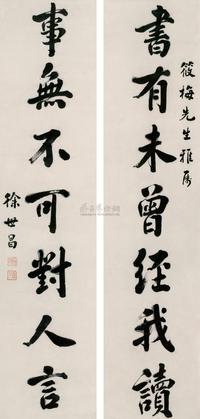 書有未曾經我讀
筱梅先生雅屬
事無不可對人言
徐世昌